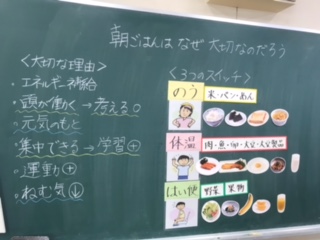 朝ごはんは なぜ 大切なのだろう
<大切な理由>
・エネルギー補給
・頭が働く→考える○
・元気のもと
・集中できる→学習⊕
・運動⊕
・ねむ気↓
<3つのスイッチ>
のう 米・パン・めん
体温 肉・魚・卵・大豆・大豆製品
はい便 野菜 果物